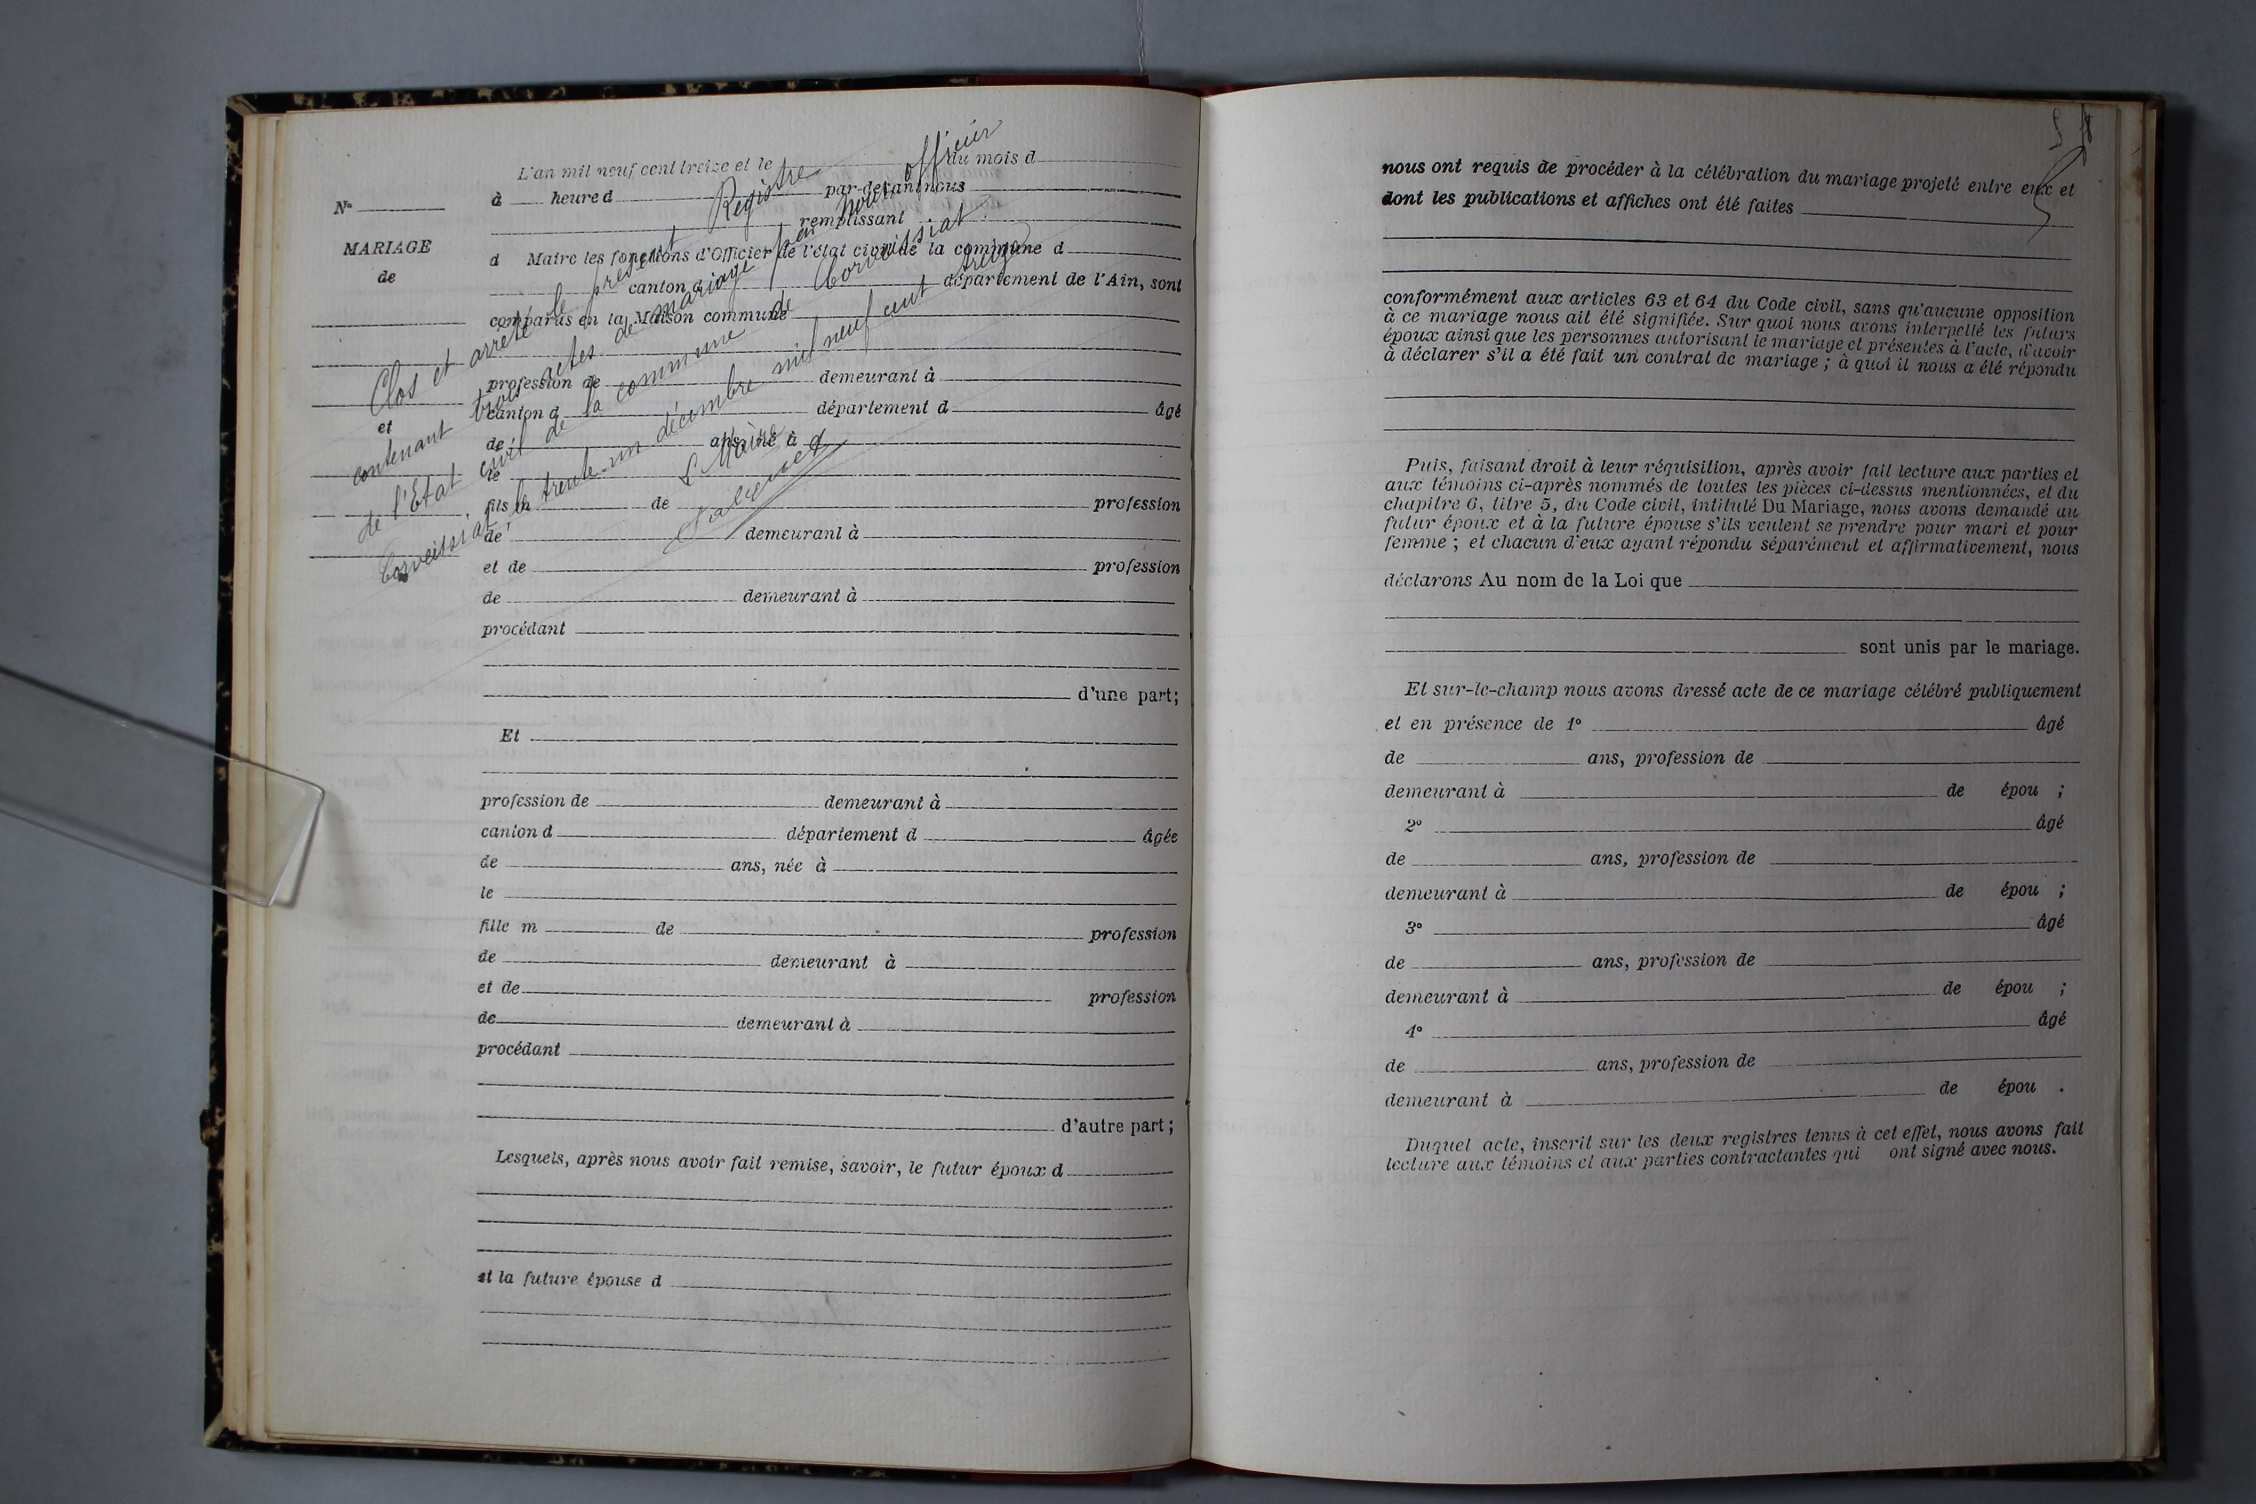 L'an mil neuf cent treize et le du mois d
N° à heure d par-devant nous
remplissant
MARIAGE
de
d Maire les fonctions d'Officier de l'état civil de la commune d
canton d département de l'Ain, sont
comparus en la Maison commune
profession de demeurant à
canton d département d âgé
et
de ans, né à
le
fils de profession
de demeurant à
et de profession
de demeurant à
procédant
d'une part;
Et
profession de demeurant à
canton d département d âgée
de ans, née à
le
fille m de profession
de demeurant à
et de profession
de demeurant à
procédant
d'autre part;
Lesquels, après nous avoir fait remise, savoir, le futur époux d
et la future épouse d
Clos et arrêté le présent Registre
contenant trois actes de mariage par nous officier
de l'Etat civil de la commune de Corveissiat
Corveissiat le trente-un décembre mil neuf cent treize
L Maire
nous ont requis de procéder à la célébration du mariage projeté entre eux et
dont les publications et affiches ont été faites
conformément aux articles 63 et 64 du Code civil, sans qu'aucune opposition
à ce mariage nous ait été signifiée. Sur quoi nous avons interpellé les futurs
époux ainsi que les personnes autorisant le mariage et présentes à l'acte, d'avoir
à déclarer s'il a été fait un contrat de mariage ; à quoi il nous a été répondu
Puis, faisant droit à leur réquisition, après avoir fait lecture aux parties et
aux témoins ci-après nommés de toutes les pièces ci-dessus mentionnées, et du
chapitre 6, titre 5, du Code civil, intitulé Du Mariage, nous avons demandé au
futur époux et à la future épouse s'ils veulent se prendre pour mari et pour
femme ; et chacun d'eux ayant répondu séparément et affirmativement, nous
déclarons Au nom de la Loi que
sont unis par le mariage.
Et sur-le-champ nous avons dressé acte de ce mariage célébré publiquement
et en présence de 1° âgé
de ans, profession de
demeurant à de épou ;
2° âgé
de ans, profession de
demeurant à de épou ;
3° âgé
de ans, profession de
demeurant à de épou ;
4° âgé
de ans, profession de
demeurant à de épou .
Duquel acte, inscrit sur les deux registres tenus à cet effet, nous avons fait
lecture aux témoins et aux parties contractantes qui ont signé avec nous.